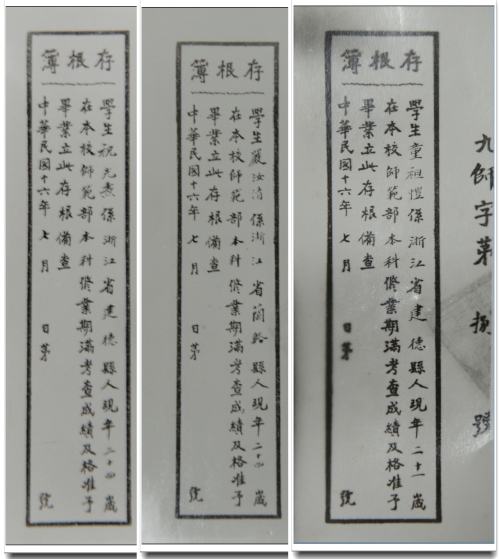 存根簿
學生祝元係浙江省建德縣人現年二十四歲
在本校師範部本科修業期滿考查成績及格准予
畢業立此存根備查
中華民國十六年七月 日第 號
存根簿
學生嚴汝清係浙江省蘭谿縣人現年二十四歲
在本校師範部本科修業期滿考查成績及格准予
畢業立此存根備查
中華民國十六年七月 日第 號
九師字第捌號
存根簿
學生童祖愷係浙江省建德縣人現年二十一歲
在本校師範部本科修業期滿考查成績及格准予
畢業立此存根備查
中華民國十六年七月 日第 號